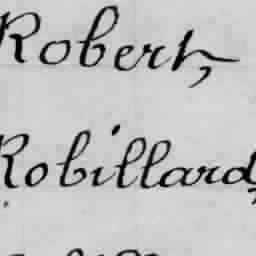 Robert,
Robillard,